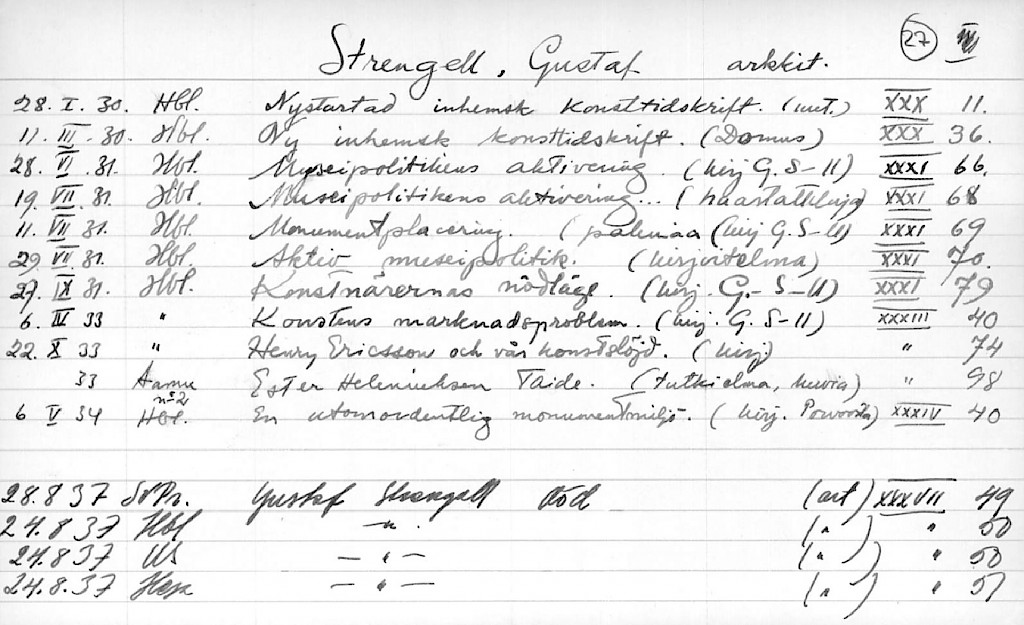 27
Strengell, Gustaf arkkit.
28. I. 30. Hbl. Nystartad inhemsk konsttidskrift. (uut.) XXX 11.
11. III. 30. Hbl. Ny inhemsk konsttidskrift. (Domus) XXX 36.
28. VI. 31. Hbl. Museipolitikens aktivering. (kirj G. S-ll) XXXI 66.
19. VII. 31. Hbl. Museipolitikens aktivering... (haastatteluja) XXXI 68
11. VII 31. Hbl. Monumentplacering. (kirj G. S-ll) XXXI 69
29. VII. 31. Hbl. Aktiv museipolitik. (kirjoitelma) XXXI 70.
27. IX 31. Hbl. Konstnärernas nödläge. (kirj. G.-S-ll) XXXI 79
6. IV 33 " Konstens marknadsproblem. (kirj. G. S-ll) XXXIII 40
22. X 33 " Henry Ericsson och vår konstslöjd. (kirj.) " 74
33 Aamu n:o 2 Ester Heleniuksen Taide. (tutkielma, kuvia) " 98
6 V 34 Hbl. En utomordentlig monumentmiljö. (kirj. Porvoosta) XXXIV 40
28.8 37 Sv Pr. Gustaf Strengell död (art) XXXVII 49
24.8 37 Hbl — " — (") " 50
24.8 37 US — " — (") " 50
24.8.37 — " — (") " 51